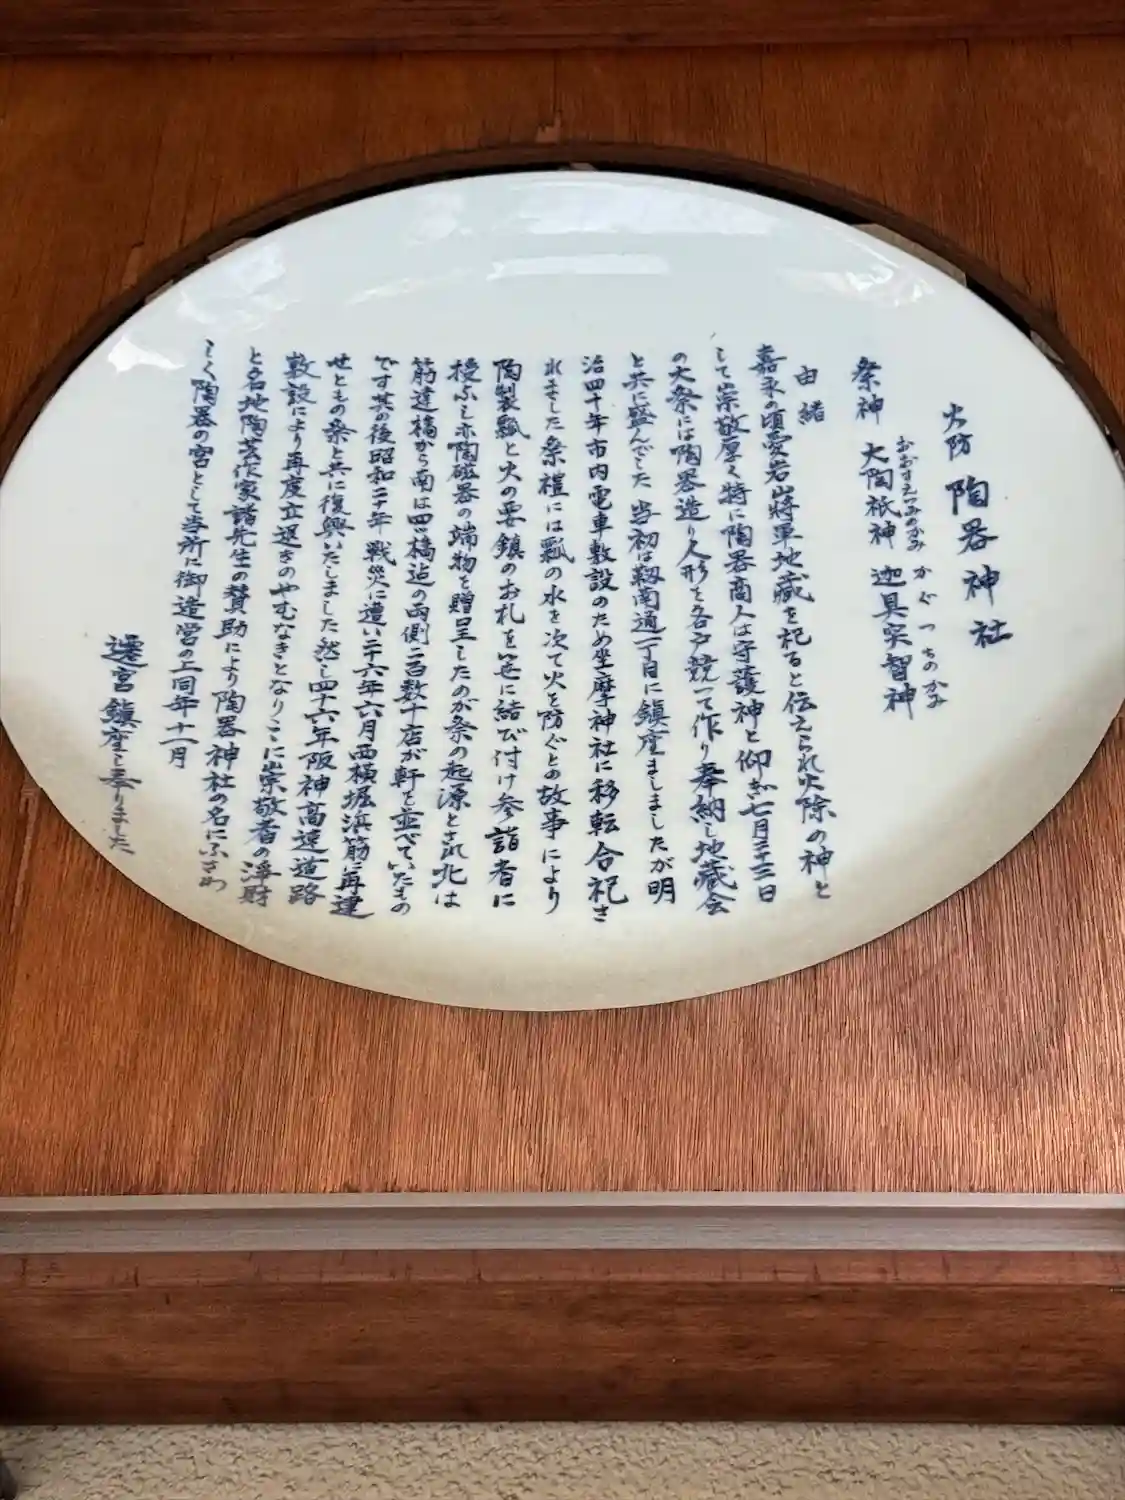 火防 陶器神社
祭神 大陶祇神 迦具突智神
おおすえつみのかみ かぐつちのかみ
由緒
嘉永の頃愛宕山將軍地蔵を祀ると伝えられ火除の神と
して崇敬厚く特に陶器商人は守護神と仰ぎ七月二十三日
の大祭には陶器造り人形を各戸競って作り奉納し地蔵会
と共に盛んでした 当初は靱南通一丁目に鎮座ましましたが明
治四十年市内電車敷設のため坐摩神社に移転合祀さ
れました 祭禮には瓢の水を次て火を防ぐとの故事により
陶製瓢と火の要鎮のお札を笹に結び付け参詣者に
授ふし亦陶磁器の端物を贈呈したのが祭の起源とされ北は
筋違橋から南は四ツ橋迠の両側二百数十店が軒を並べていたもの
です 其の後昭和二十年戦災に遭い二十六年六月西横堀浜筋に再建
せともの祭と共に復興いたしました 然し四十六年阪神高速道路
敷設により再度立退きのやむなきとなりここに崇敬者の浄財
と各地陶芸作家諸先生の賛助により陶器神社の名にふさわ
しく陶器の宮として当所に御造営の上同年十一月
遷宮鎮座し奉りました